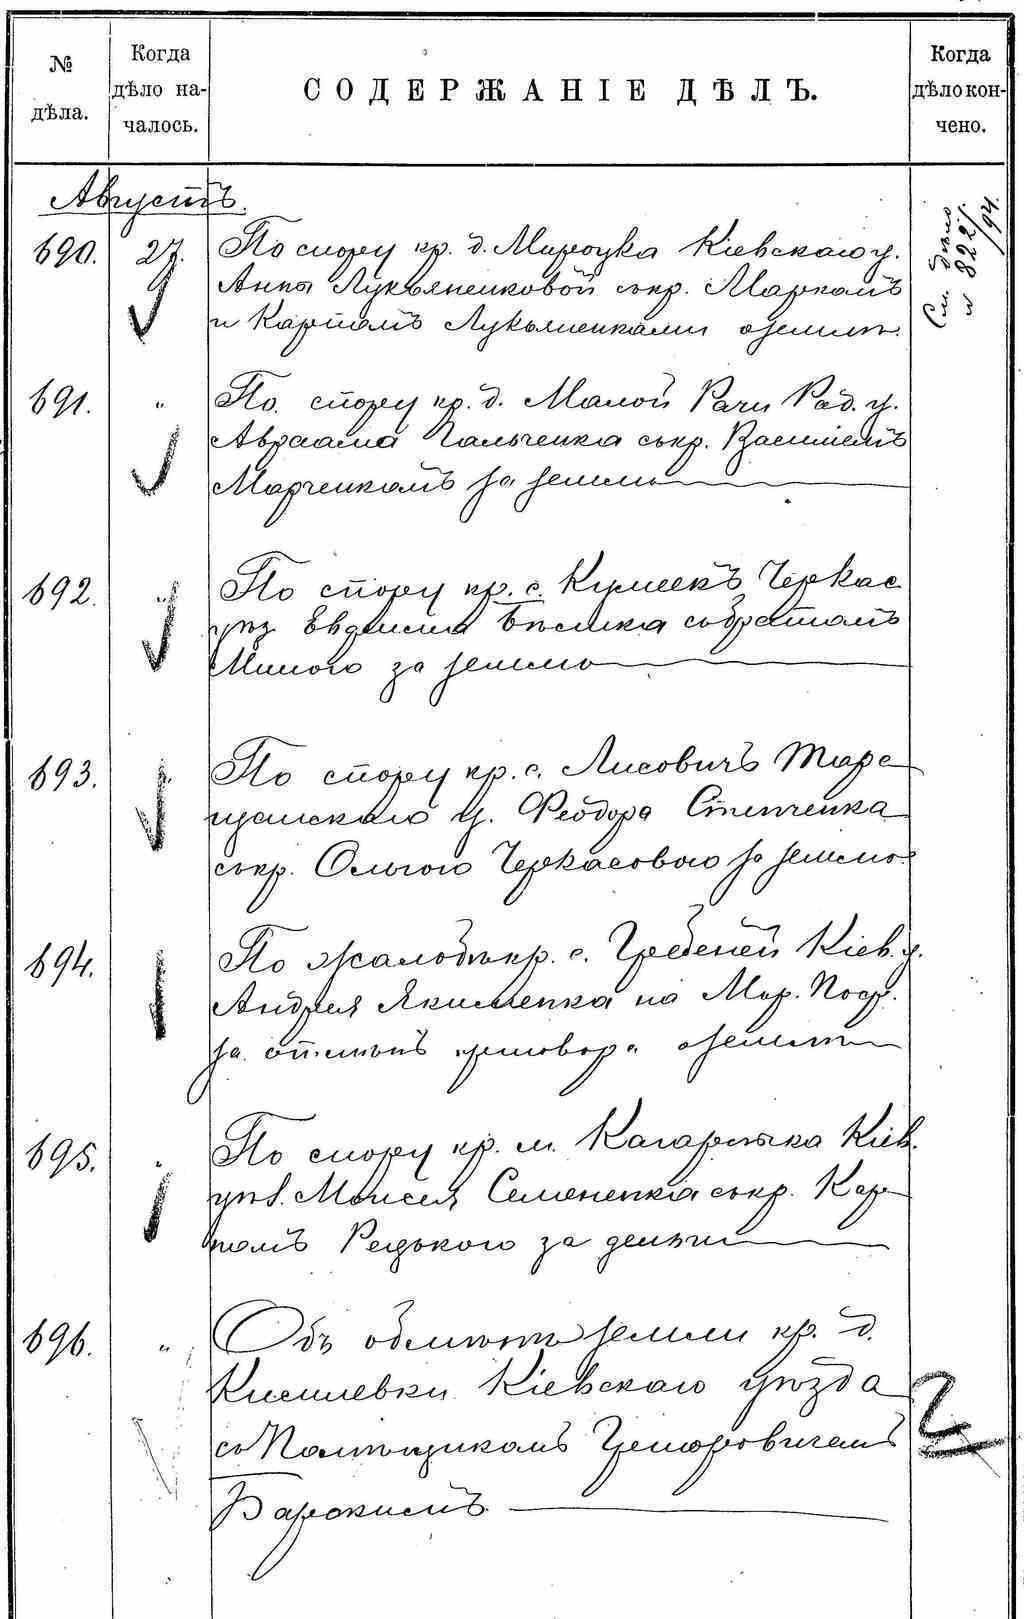 № дѣла.
Когда дѣло на-
чалось.
СОДЕРЖАНІЕ ДѢЛЪ.
Когда дѣло кон-
чено.
Августъ.
690. 27. По спору кр. д. Мироцка Кіевскаго у.
Анны Лукьяненковой съ кр. Маркомъ
и Карпомъ Лукьяненками о землѣ.
См. дѣло
№ 822/94.
691. " По спору кр. д. Малой Рачи Рад. у.
Авраама Гальченка съ кр. Василіемъ
Марченкомъ за землю
692. " По спору кр. с. Кумеекъ Черкас
уѣз. Евдокима Бѣлика съ братомъ
за землю
693. " По спору кр. с. Лисовичъ Тара
щанскаго у. Феодора Степченка
съ кр. Ольгою Черкасовою за землю.
694. По жалобѣ кр. с. Гребеней Кіев. у.
Андрея Якименка на Мир. Поср.
за отмѣну договора о землѣ
695. " По спору кр. м. Кагарлыка Кіев.
уѣз. Моисея Семененка съ кр. Кар
помъ Редькою за деньги
696. " Объ обмѣнѣ земли кр. д.
Кіевскаго уѣзда
съ Помѣщикомъ Григоровичемъ